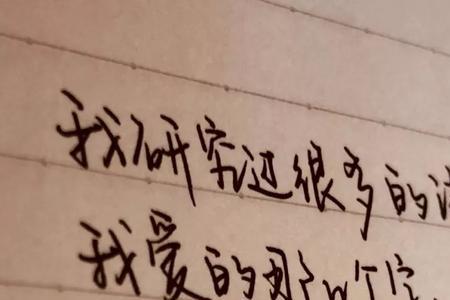 我研究过很多的
我爱的那个